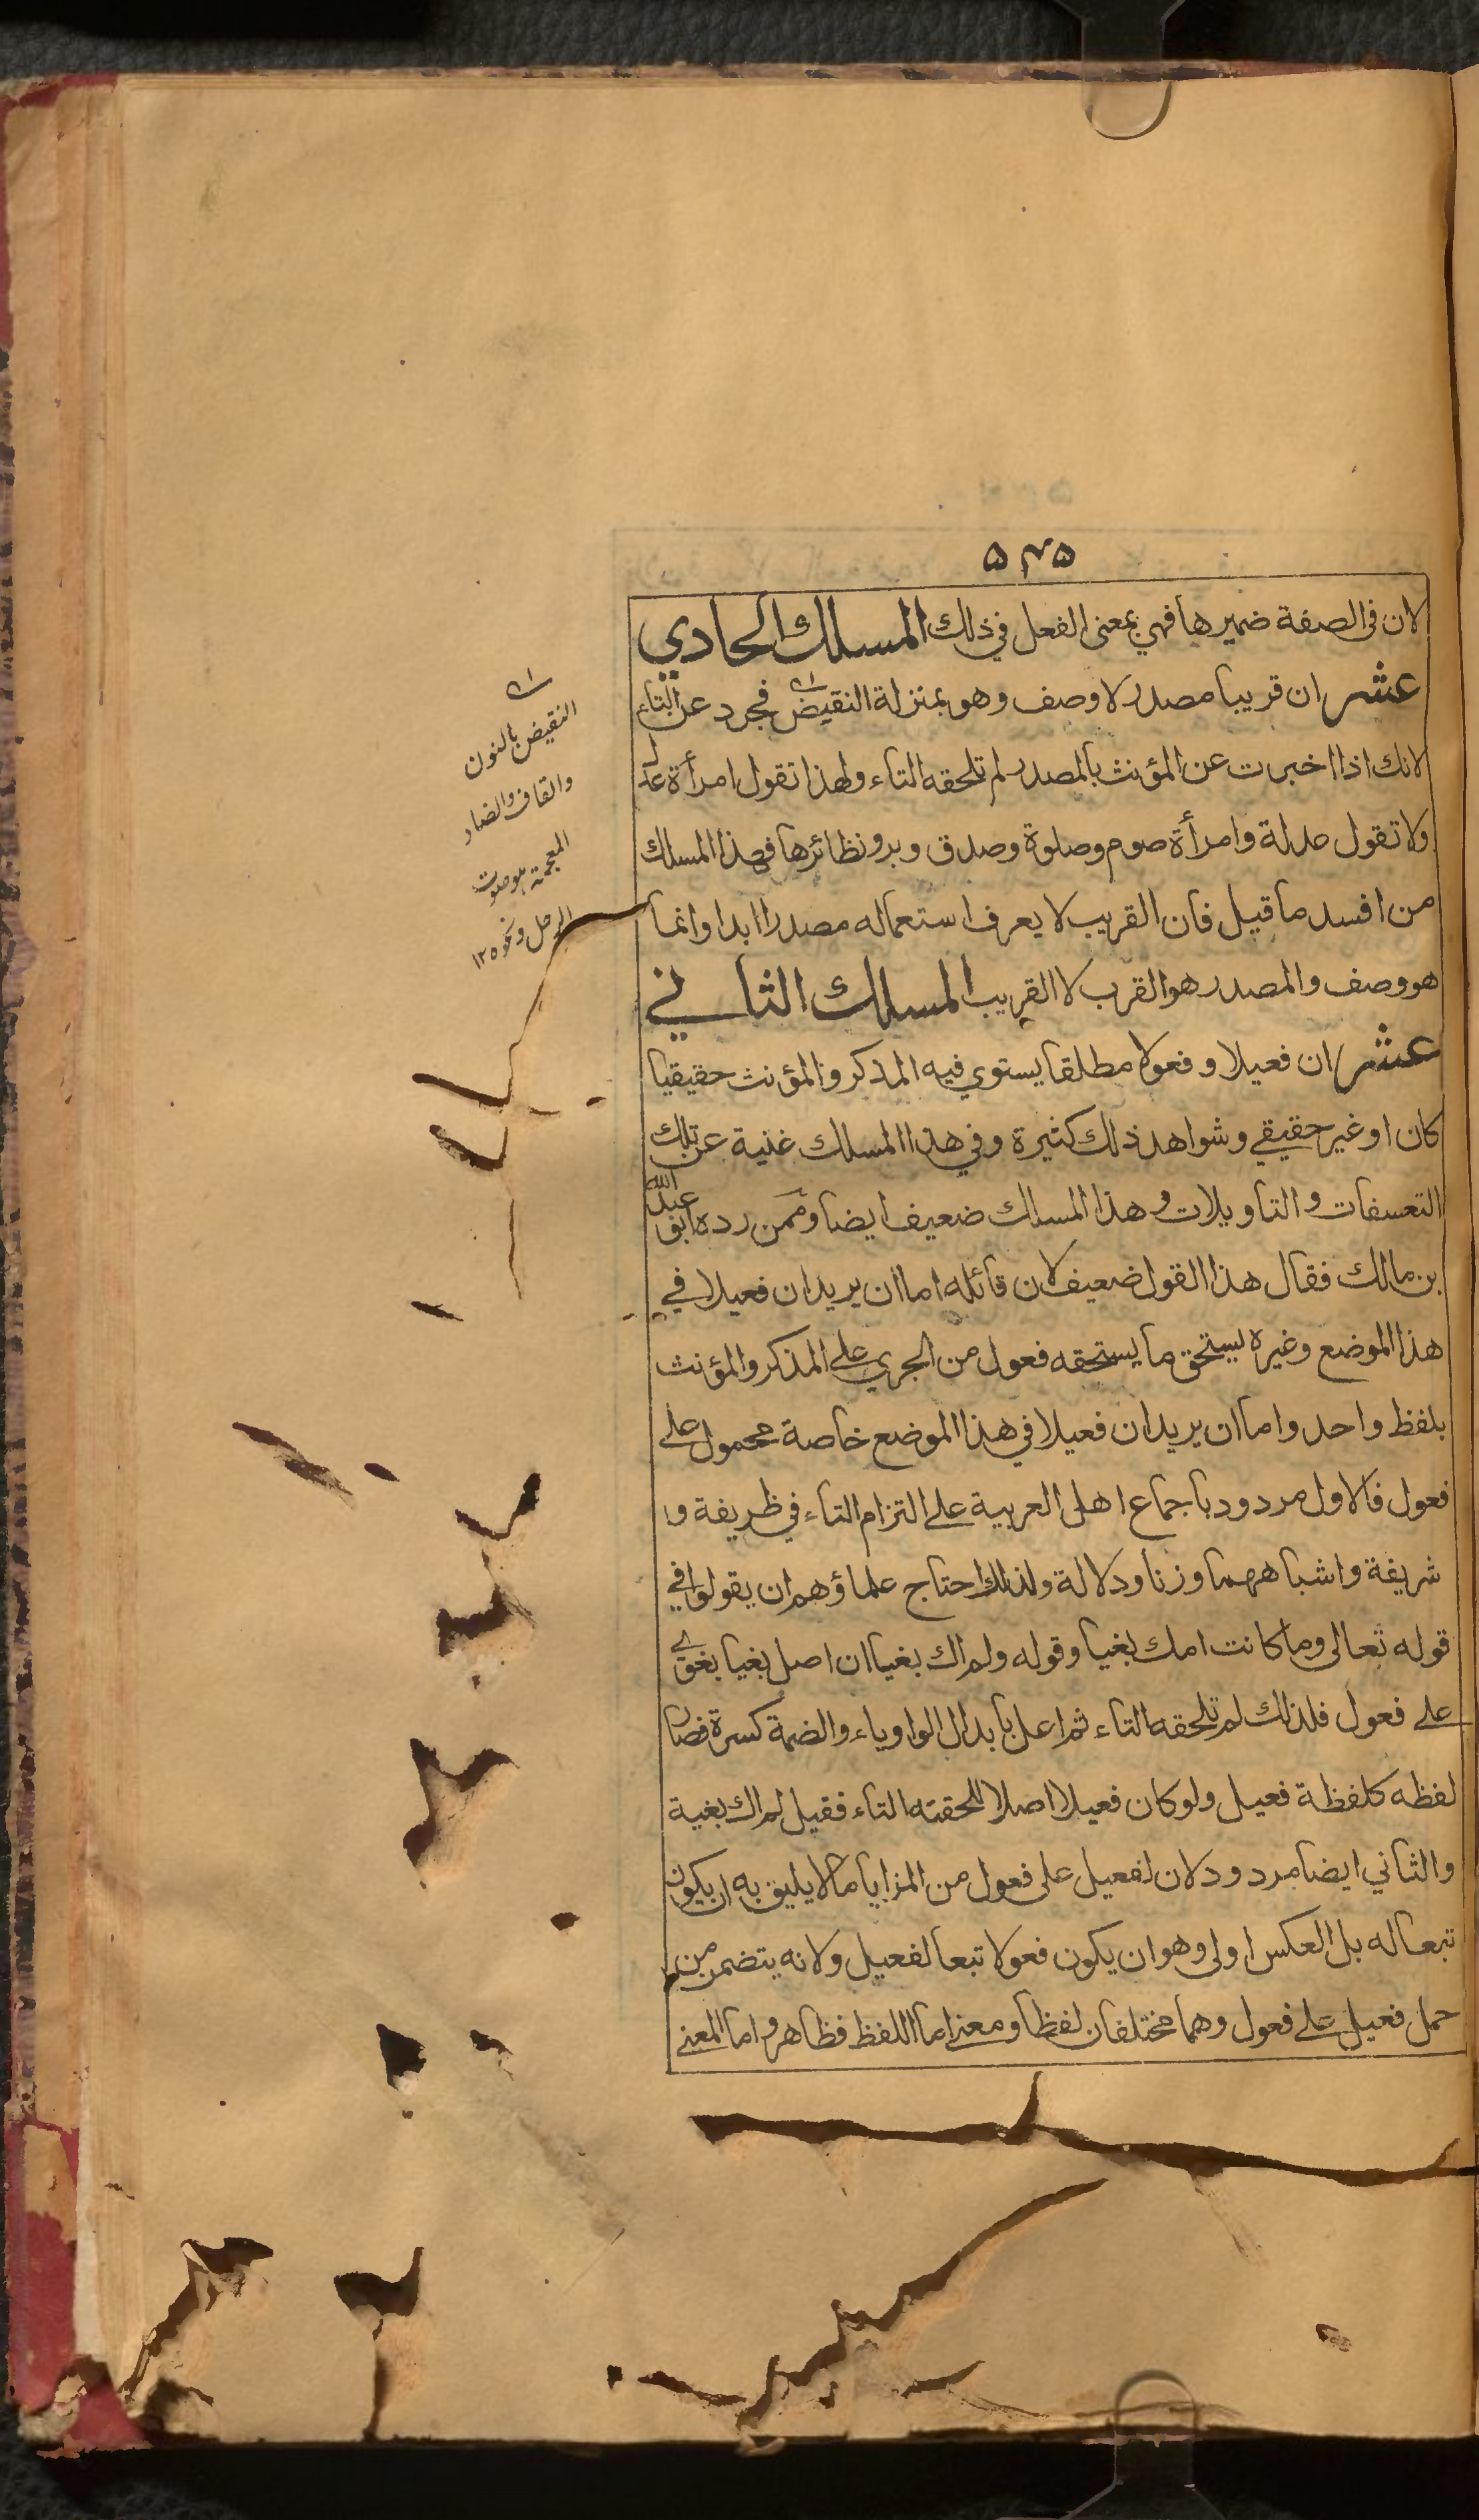 ۵۴۵
لان فى الصفة ضميرها فهي بمعنى الفعل في ذلك المسلك الحادي
عشر ان قريبا مصدر لا وصف وهو بمنزلة النقيض فجرد عن التاء
لانك اذا اخبرت عن المؤنث بالمصدر لم تلحقه التاء ولهذا تقول امرأة عدل
ولا تقول عدلة وامرأة صوم وصلوة وصدق وبر ونظائرها فهذا المسلك
من افسد ما قيل فان القريب لا يعرف استعماله مصدرا ابدا وانما
هو وصف والمصدر هو القرب لا القريب المسلك الثاني
عشر ان فعيلا وفعولا مطلقا يستوي فيه المذكر والمؤنث حقيقيا
كان او غير حقيقي وشواهد ذلك كثيرة وفي هذا المسلك غنية عن تلك
التعسفات والتاويلات وهذا المسلك ضعيف ايضا وممن رده ابو عبد الله
بن مالك فقال هذا القول ضعيف لان قائله اما ان يريد ان فعيلا في
هذا الموضع وغيره يستحق ما يستحقه فعول من الجري على المذكر والمؤنث
بلفظ واحد واما ان يريد ان فعيلا في هذا الموضع خاصة محمول على
فعول فالاول مردود باجماع اهل العربية على التزام التاء في ظريفة و
شريفة واشباههما وزنا ودلالة ولذلك احتاج علماؤهم ان يقولوا في
قوله تعالى وما كانت امك بغيا وقوله ولم اك بغيا ان اصل بغيا بغوي
على فعول فلذلك لم تلحقه التاء ثم اعل بابدال الواو ياء والضمة كسرة فصار
لفظه كلفظة فعيل ولو كان فعيلا اصلا للحقته التاء فقيل لم اك بغية
والثاني ايضا مردود لان لفعيل على فعول من المزايا ما لا يليق به ان يكون
تبعا له بل العكس اولى وهو ان يكون فعولا تبعا لفعيل ولانه يتضمن من
حمل فعيل على فعول وهما مختلفان لفظا ومعنى اما اللفظ فظاهر واما المعنى
النقيض بالنون
والقاف والضاد
المعجمة هو صوت
الرحل ونحوه ١٢